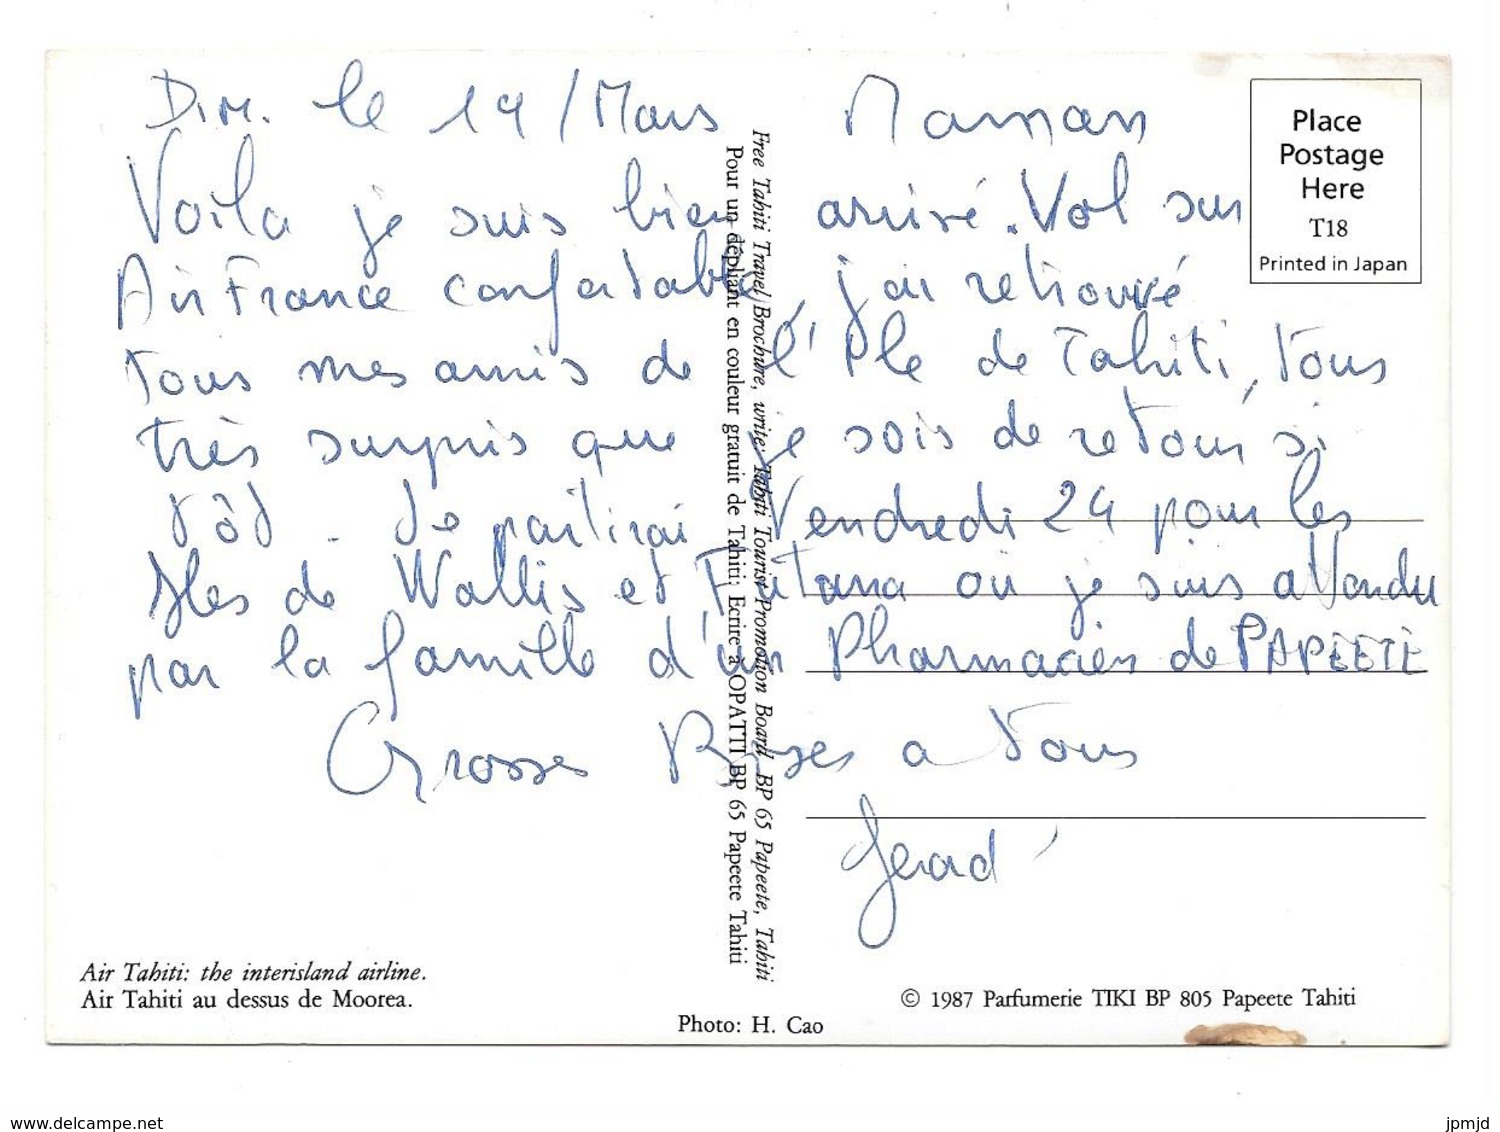 Dim. le 19/Mars Maman
Voila je suis bien arrivé. Vol sur
Air France confortable, j'ai retrouvé
tous mes amis de l'Ile de Tahiti, tous
très surpris que je sois de retour si
tôt. Je partirai Vendredi 24 pour les
Iles de Wallis et Futuna où je suis attendu
par la famille d'un Pharmacien de PAPEETE
Grosses Bises a tous
Gerard
Place
Postage
Here
T18
Printed in Japan
Free Tahiti Travel Brochure, write: Tahiti Tourist Promotion Board BP 65 Papeete, Tahiti
Pour un dépliant en couleur gratuit de Tahiti: Ecrire à OPATTI BP 65 Papeete Tahiti
Air Tahiti: the interisland airline.
Air Tahiti au dessus de Moorea.
© 1987 Parfumerie TIKI BP 805 Papeete Tahiti
Photo: H. Cao
www.delcampe.net
jpmjd